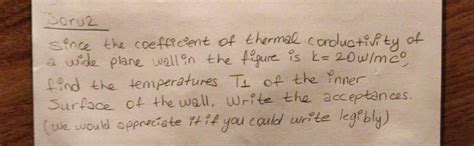 Soru2
Since the coefficient of thermal conductivity of
a wide plane wall in the figure is k= 20w/mc°,
find the temperatures T1 of the inner
Surface of the wall. Write the acceptances.
(we would appreciate it if you could write legibly)